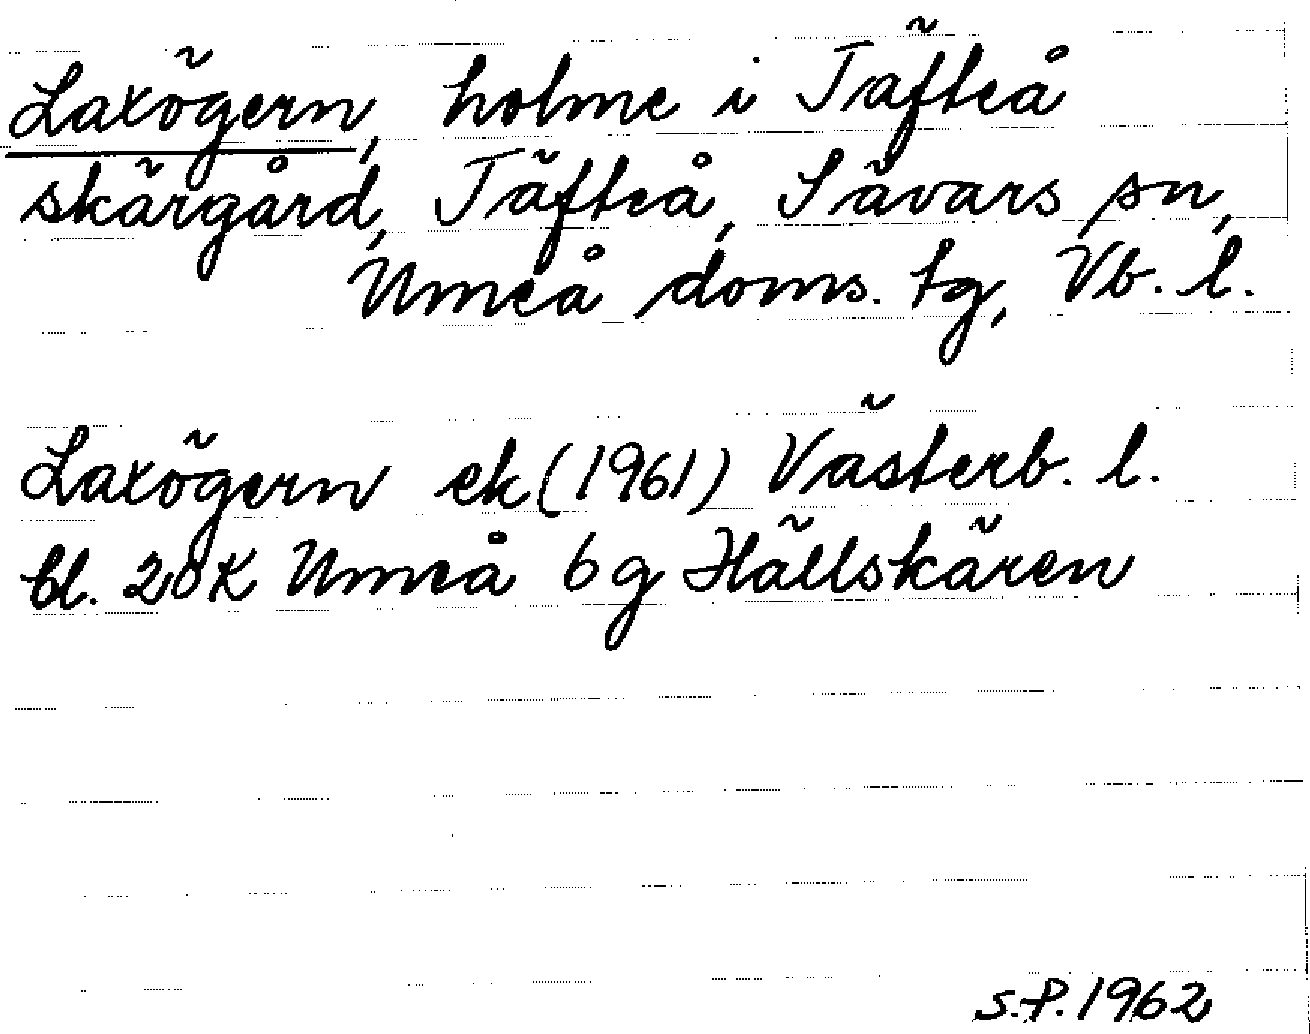 Laxögern, holme i Täfteå
skärgård, Täfteå, Sävars sn,
Umeå doms. tg, Vb. l.
Laxögern ek (1961) Västerb. l.
bl. 20K Umeå 6g Hällskären
S.P. 1962